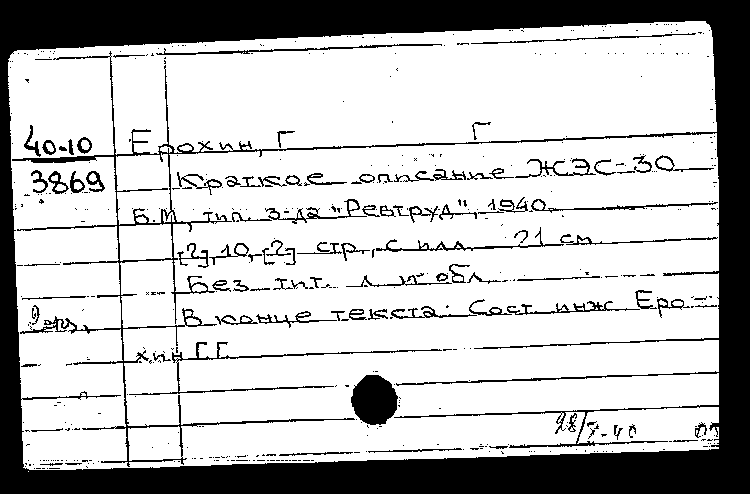 40-10
3869
Ерохин, Г Г
Краткое описание ЖЭС-30
Б.М., тип. з-да "Ревтруд", 1940.
[2], 10, [2] стр., с илл. 21 см
Без тит. л и обл.
2 экз.
В конце текста: Сост. инж Еро-
хин Г.Г.
28/X-40